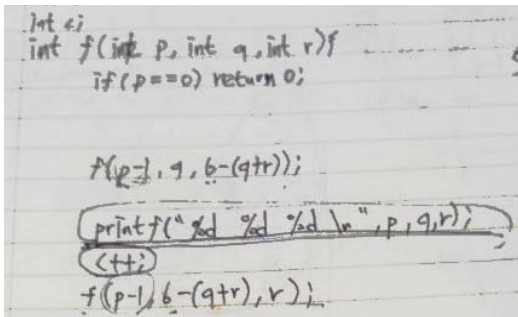 int c;
int f(int p, int q, int r){
if(p==0) return 0;
f(p-1, q, 6-(q+r));
printf("%d %d %d \n", p, q, r);
c++;
f(p-1, 6-(q+r), r);